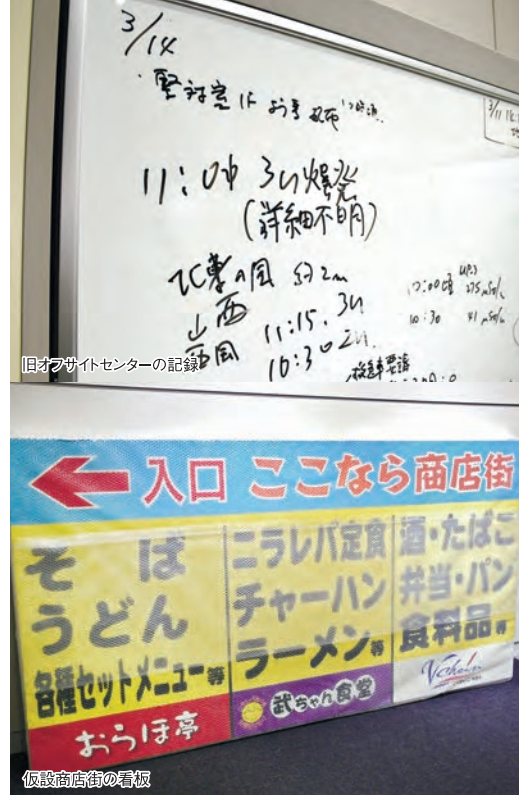 3/14
11:04 3u爆発
(詳細不明)
北東の風 約2m
↓西
西風
11:15. 3u
10:30 2u.
17:00頃
10:30 41 μSv/h
旧オフサイトセンターの記録
入口 ここなら商店街
そば
うどん
各種セットメニュー等
おらほ亭
ニラレバ定食
チャーハン
ラーメン等
武ちゃん食堂
酒・たばこ
弁当・パン
食料品等
VChain
仮設商店街の看板